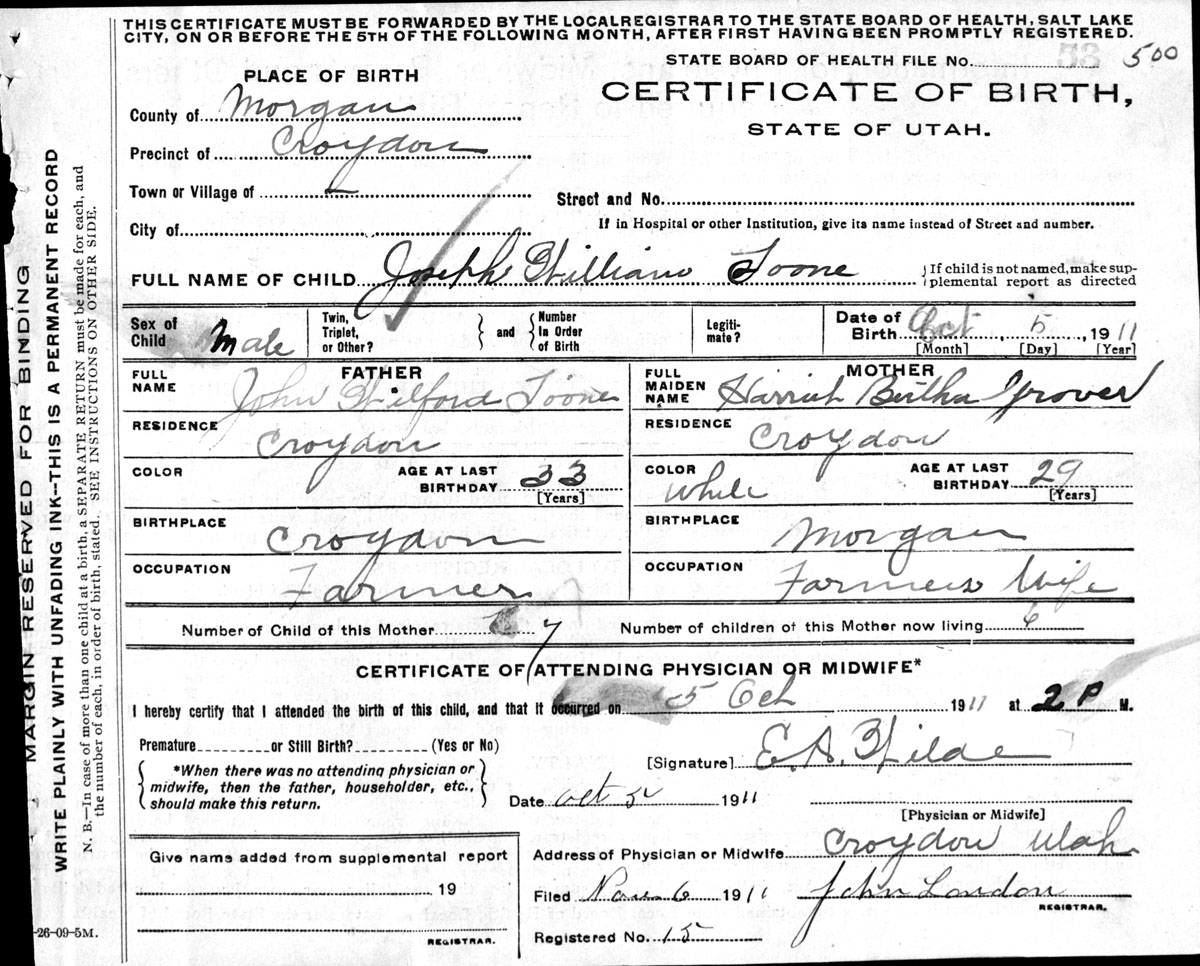 THIS CERTIFICATE MUST BE FORWARDED BY THE LOCAL REGISTRAR TO THE STATE BOARD OF HEALTH, SALT LAKE
CITY, ON OR BEFORE THE 5TH OF THE FOLLOWING MONTH, AFTER FIRST HAVING BEEN PROMPTLY REGISTERED.
STATE BOARD OF HEALTH FILE No. 53 500
PLACE OF BIRTH
CERTIFICATE OF BIRTH,
STATE OF UTAH.
County of Morgan
Precinct of Croydon
Town or Village of
Street and No.
City of
If in Hospital or other Institution, give its name instead of Street and number.
FULL NAME OF CHILD Joseph William Toone
{If child is not named, make sup-
plemental report as directed
Sex of Child Male
Twin, Triplet, or Other? } and { Number In Order of Birth
Legiti-mate?
Date of Birth Oct, 5, 1911
[Month] [Day] [Year]
FATHER
FULL NAME John Wilford Toone
RESIDENCE Croydon
COLOR
AGE AT LAST BIRTHDAY 33
[Years]
BIRTHPLACE Croydon
OCCUPATION Farmer
MOTHER
FULL MAIDEN NAME Harriet Bertha Grover
RESIDENCE Croydon
COLOR White
AGE AT LAST BIRTHDAY 29
[Years]
BIRTHPLACE Morgan
OCCUPATION Farmers Wife
Number of Child of this Mother 7
Number of children of this Mother now living 6
CERTIFICATE OF ATTENDING PHYSICIAN OR MIDWIFE*
I hereby certify that I attended the birth of this child, and that it occurred on 5 Oct 1911 at 2 P M.
Premature or Still Birth? (Yes or No)
[Signature] E. A. Wilde
{*When there was no attending physician or
midwife, then the father, householder, etc.,
should make this return.}
Date Oct 1911
[Physician or Midwife]
Give name added from supplemental report
19
REGISTRAR.
Address of Physician or Midwife Croydon Utah
Filed Nov 6 1911 John London
REGISTRAR.
Registered No. 15
MARGIN RESERVED FOR BINDING
WRITE PLAINLY WITH UNFADING INK--THIS IS A PERMANENT RECORD
N. B.—In case of more than one child at a birth, a SEPARATE RETURN must be made for each, and
the number of each, in order of birth, stated. SEE INSTRUCTIONS ON OTHER SIDE.
-26-09-5M.